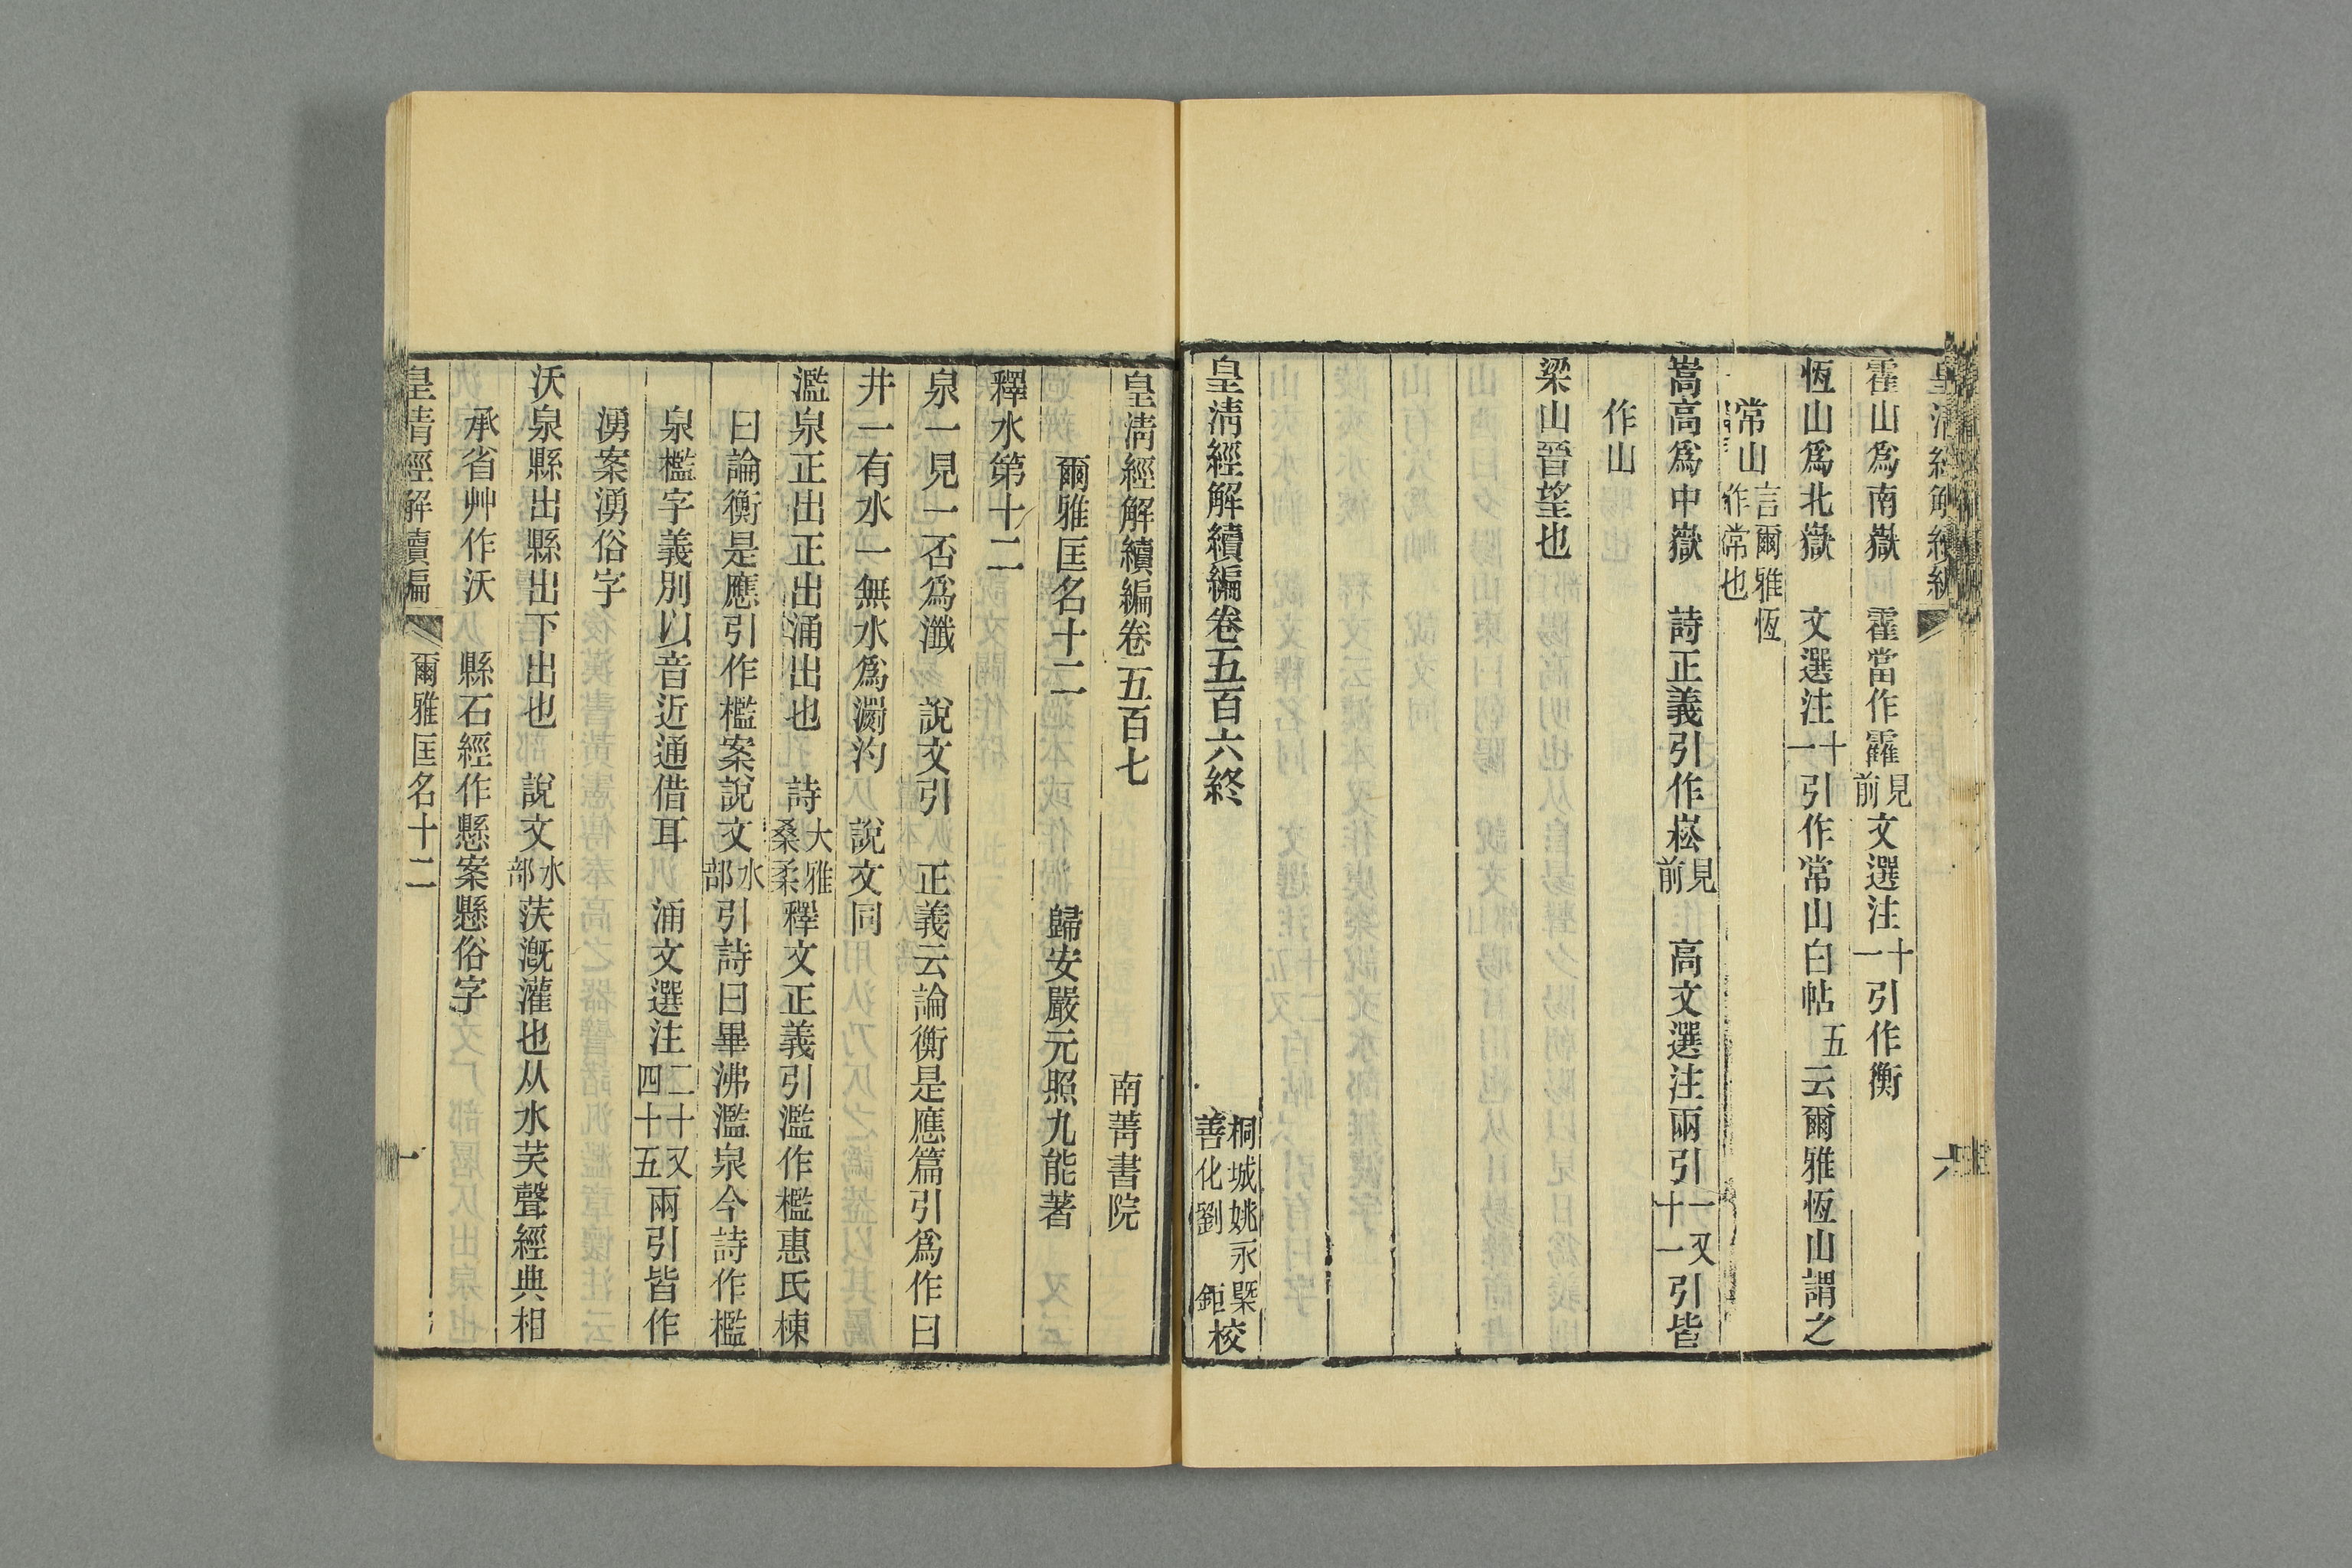 霍山爲南嶽　霍當作靃見前文選注十一引作衡
恆山爲北嶽　文選注十一引作常山白帖五云爾雅恆山謂之
常山言爾雅恆作常也
嵩高爲中嶽　詩正義引作崧見前　高文選注兩引一十又一引皆
作山
梁山晉望也
皇淸經解續編卷五百六終
桐城姚永㮣
善化劉　鉅校
皇淸經解續編卷五百七
南菁書院
爾雅匡名十二　歸安嚴元照九能著
釋水第十二
泉一見一否爲瀸　說文引　正義云論衡是應篇引爲作曰
井一有水一無水爲瀱汋　說文同
濫泉正出正出涌出也　詩大雅桑柔釋文正義引濫作檻惠氏棟
曰論衡是應引作檻案說文水部引詩曰畢沸濫泉今詩作檻
泉檻字義別以音近通借耳　涌文選注二十又四十五兩引皆作
湧案湧俗字
沃泉縣出縣出下出也　說文水部䓇漑灌也从水芺聲經典相
承省艸作沃　縣石經作懸案懸俗字
皇淸經解續編
爾雅匡名十二
一